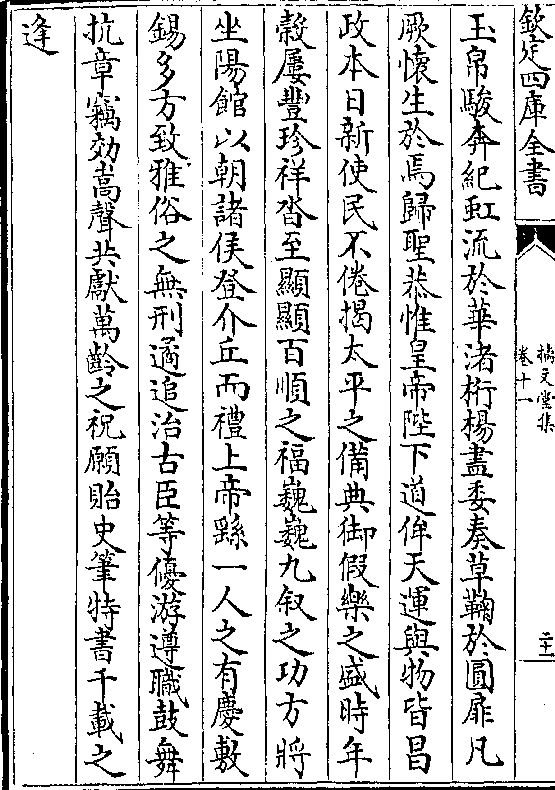 欽定四庫全書
摛文堂集
卷十一
二十一
玉帛駿奔紀虹流於華渚桁楊盡委奏草鞠於圓扉凡
厥懷生於焉歸聖恭惟皇帝陛下道侔天運與物皆昌
政本日新使民不倦揭太平之備典御假樂之盛時年
穀屢豐珍祥沓至顯顯百順之福巍巍九叙之功方將
坐陽館以朝諸侯登介丘而禮上帝繇一人之有慶敷
錫多方致雅俗之無刑遹追治古臣等優游遵職鼓舞
抗章竊効嵩聲共獻萬齡之祝願貽史筆特書千載之
逢